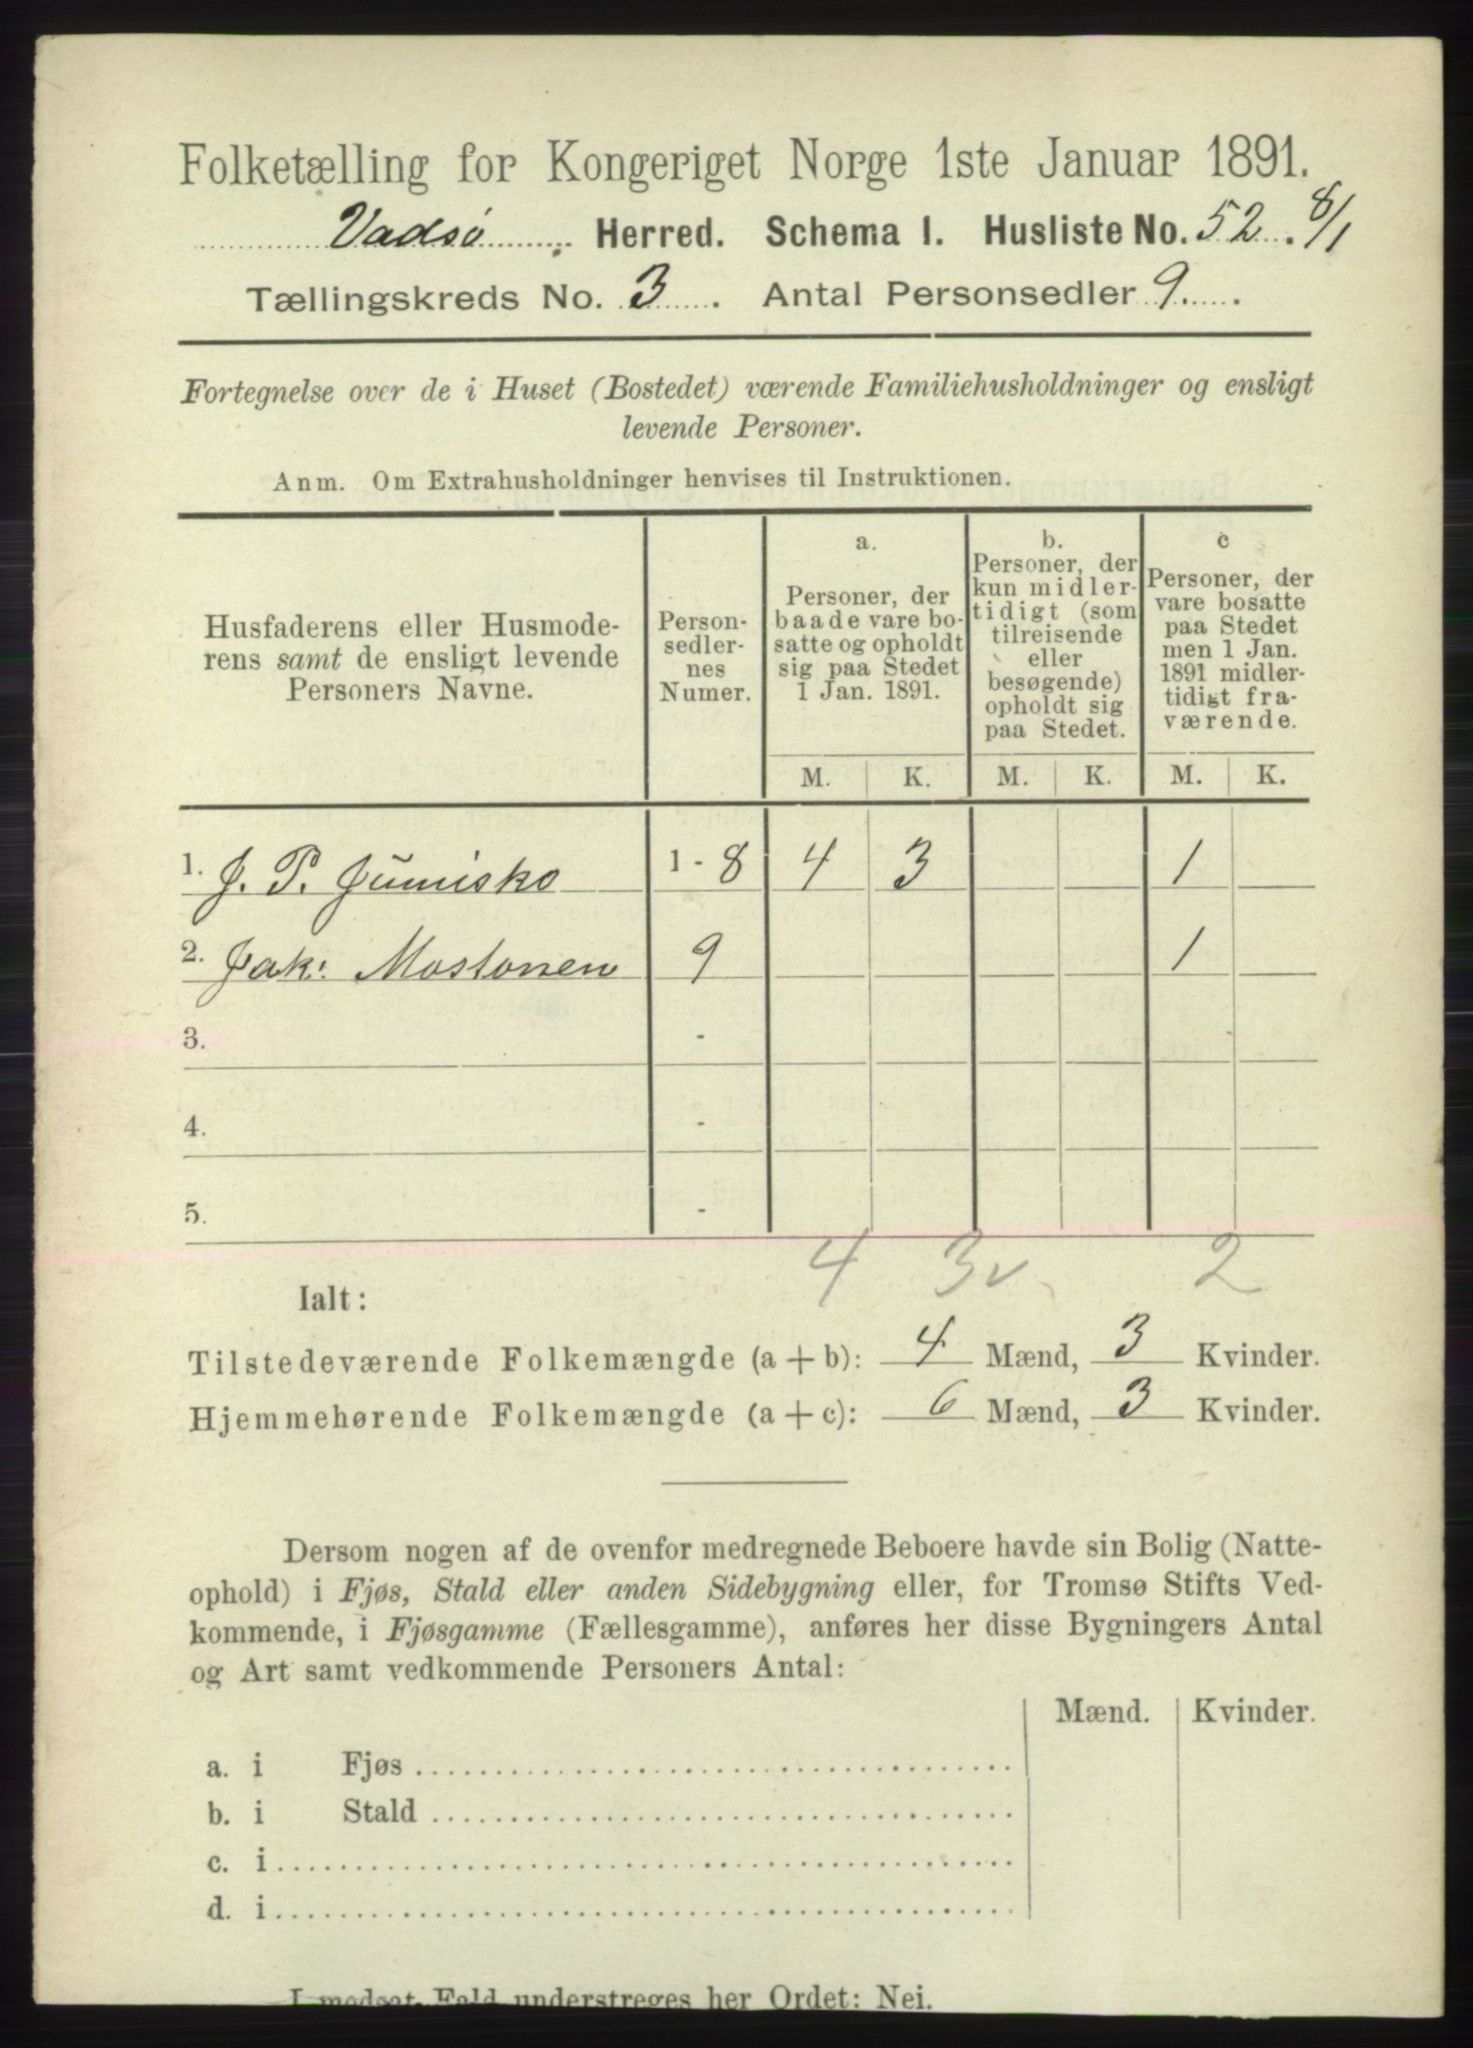 Folketælling for Kongeriget Norge 1ste Januar 1891.
Vadsø Herred. Schema I. Husliste No. 52. 8/1
Tællingskreds No. 3. Antal Personsedler 9.
Fortegnelse over de i Huset (Bostedet) værende Familiehusholdninger og ensligt
levende Personer.
Anm. Om Extrahusholdninger henvises til Instruktionen.
Husfaderens eller Husmode-
rens samt de ensligt levende
Personers Navne.
Person-
sedler-
nes
Numer.
a.
Personer, der
baade vare bo-
satte og opholdt
sig paa Stedet
1 Jan. 1891.
b.
Personer, der
kun midler-
tidigt (som
tilreisende
eller
besøgende)
opholdt sig
paa Stedet.
c
Personer, der
vare bosatte
paa Stedet
men 1 Jan.
1891 midler-
tidigt fra-
værende.
M. K. M. K. M. K.
1. J. P. Jumisko 1 - 8 4 3 1
2. Jak: Mostonen 9 1
3. -
4. -
5. -
4 3 v 2
Ialt:
Tilstedeværende Folkemængde (a + b): 4 Mænd, 3 Kvinder.
Hjemmehørende Folkemængde (a + c): 6 Mænd, 3 Kvinder.
Dersom nogen af de ovenfor medregnede Beboere havde sin Bolig (Natte-
ophold) i Fjøs, Stald eller anden Sidebygning eller, for Tromsø Stifts Ved-
kommende, i Fjøsgamme (Fællesgamme), anføres her disse Bygningers Antal
og Art samt vedkommende Personers Antal:
Mænd. Kvinder.
a. i Fjøs
b. i Stald
c. i
d. i
I modsat Fald understreges her Ordet: Nei.